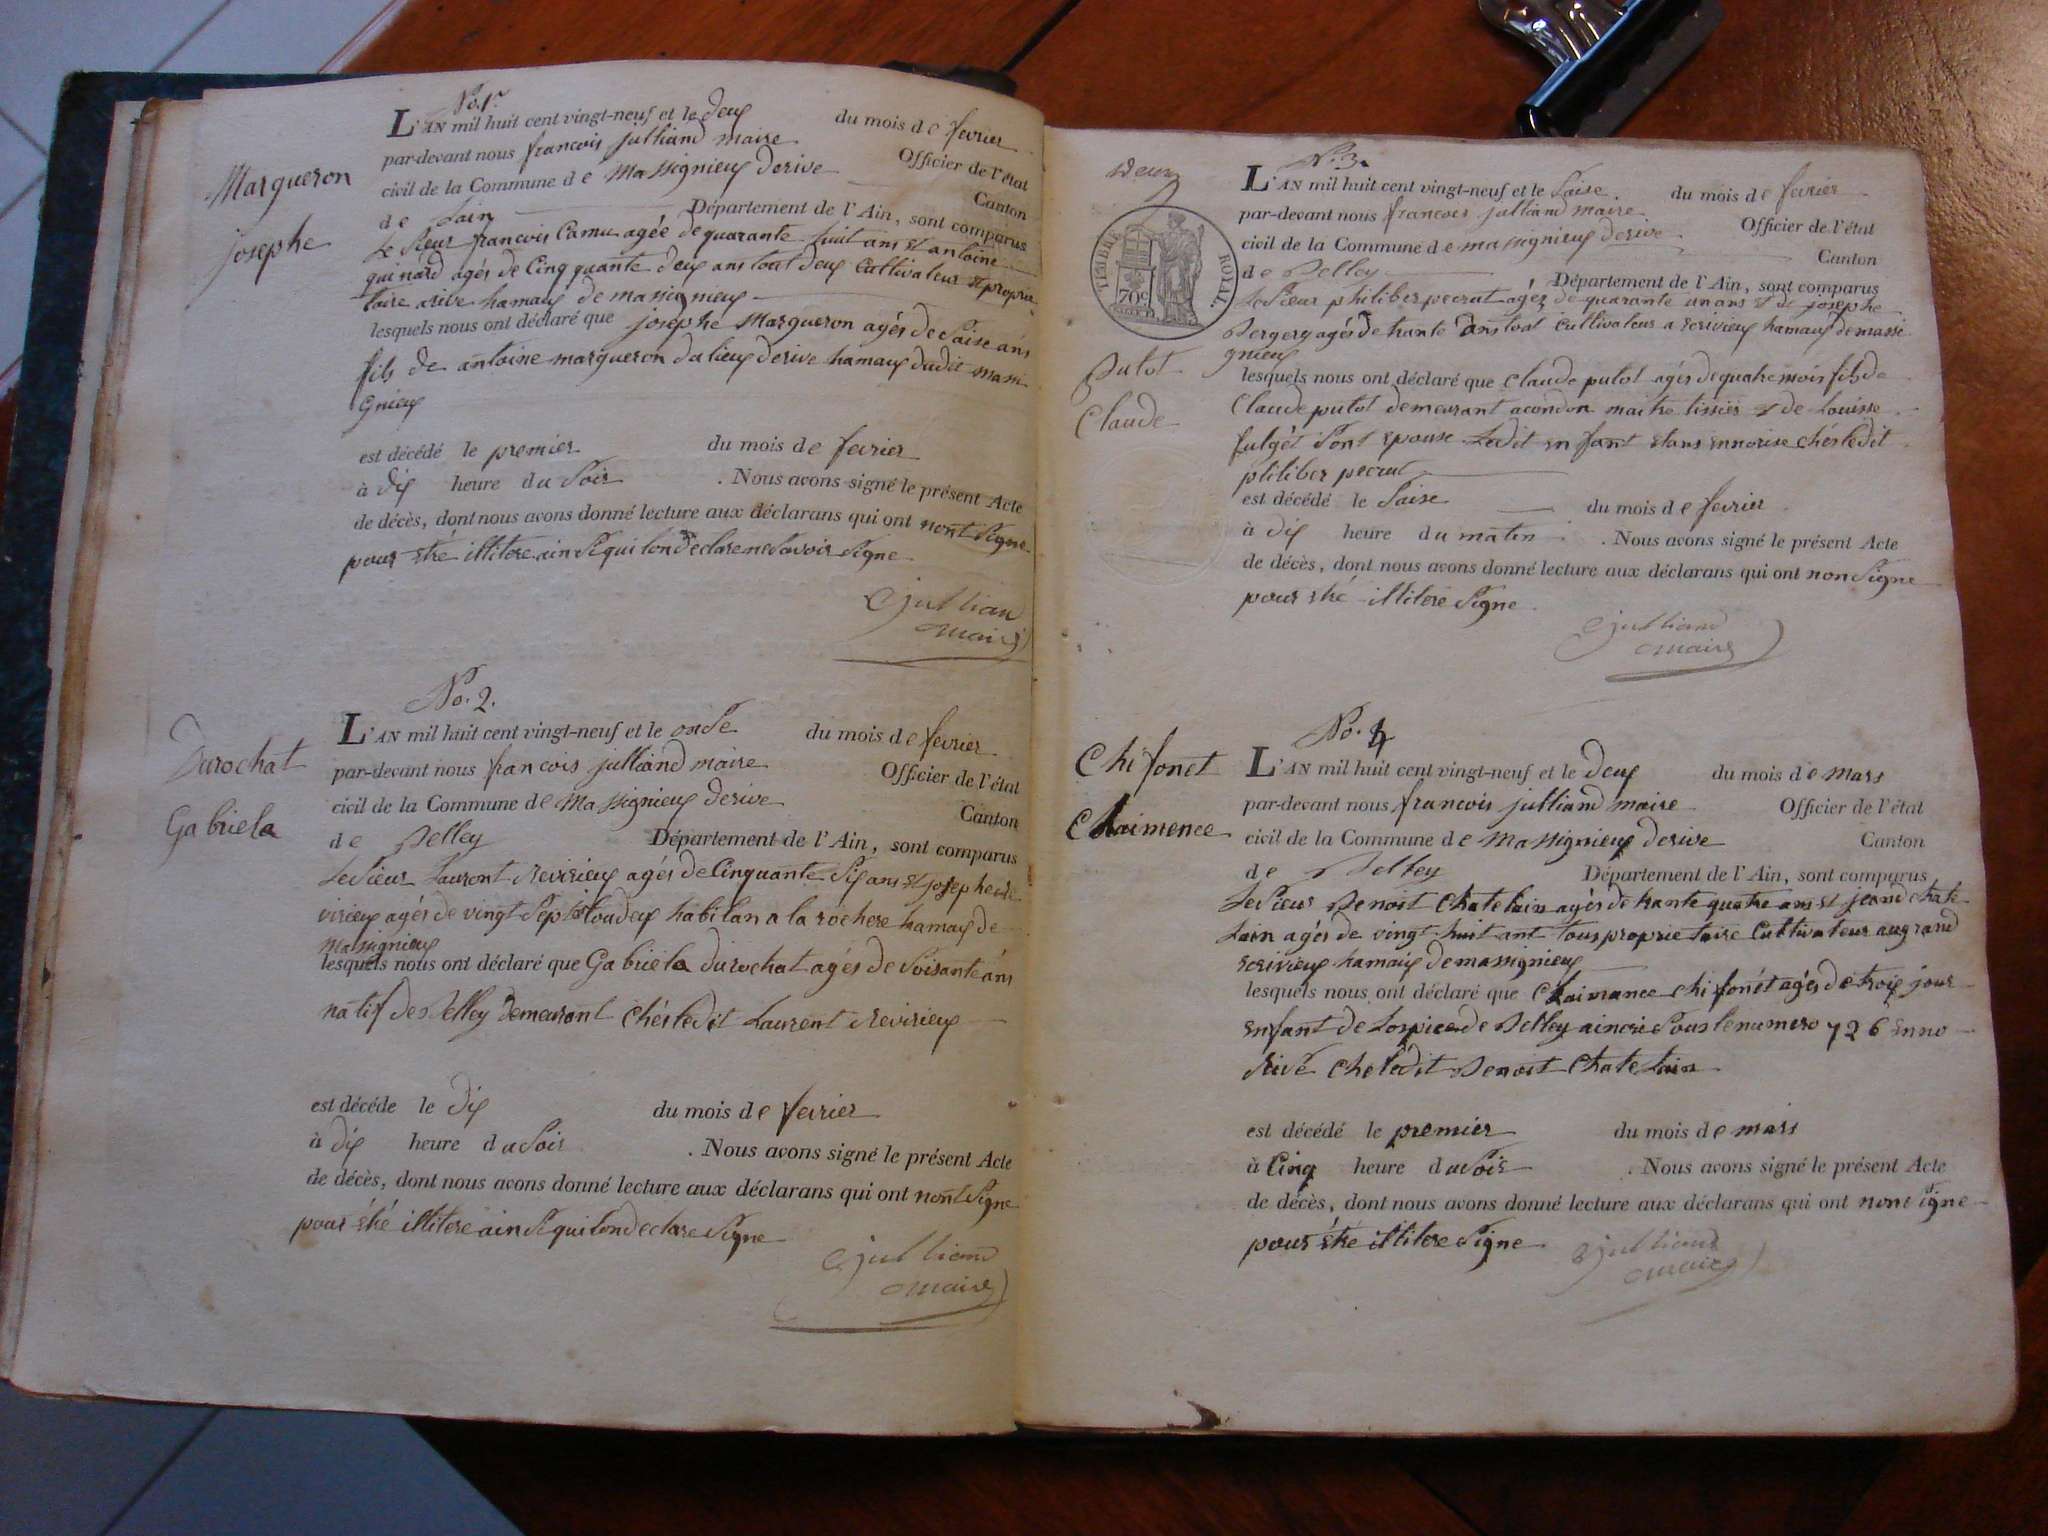 No. 1er
L'AN mil huit cent vingt-neuf et le deux du mois de fevrier
par-devant nous francois julliand maire Officier de l'état
civil de la Commune de Massignieux derive Canton
de Lain Département de l'Ain, sont comparus
Le sieur francois Camu agée de quarante huit ans et antoine
quinard agés de Cinquante deux ans tout deux Cultivateur et proprie
taire arive hamaux de massignieux
lesquels nous ont déclaré que josephe Margueron agés de Saise ans
fils de antoine margueron du lieux derive hamaux dudit massi
Gnieux
est décédé le premier du mois de fevrier
à dix heure du Soir . Nous avons signé le présent Acte
de décès, dont nous avons donné lecture aux déclarans qui ont nont Signe
pour étré illitere ainsi quilon declare ne Savoir Signe
julliand
maire
Margueron
josephe
No. 2.
L'AN mil huit cent vingt-neuf et le onse du mois de fevrier
par-devant nous francois julliand maire Officier de l'état
civil de la Commune de Massignieux derive Canton
de Belley Département de l'Ain, sont comparus
Le Sieur Laurent Revirieux agés de Cinquante Six ans et josephe re
virieux agés de vingt Sept toudeux habitan a la rochere hamaux de
Massignieux
lesquels nous ont déclaré que Gabriela durochat agés de Soisante ans
natif de Belley demeurant Chés ledit Laurent Revirieux
est décéde le dix du mois de fevrier
à dix heure du Soir . Nous avons signé le présent Acte
de décès, dont nous avons donné lecture aux déclarans qui ont nont Signe
pour étré illitere ainsi quilon declare Signe
julliand
maire
Durochat
Gabriela
deux
TIMBRE ROYAL
70c
No. 3.
L'AN mil huit cent vingt-neuf et le Saise du mois de fevrier
par-devant nous francois julliand maire Officier de l'état
civil de la Commune de massignieux derive Canton
de Belley Département de l'Ain, sont comparus
Le Sieur philiber pecrut agéz de quarante un ans et de josephe
Bergery agés de trante ans tout Cultivateur a Scrivieux hamaux demassi
gnieux
lesquels nous ont déclaré que Claude putot agés de quatre mois fils de
Claude putot demeurant acondon maitre tissier et de Louisse
fulgét Sont epouse Ledit enfant etans ennorise chés ledit
philiber pecrut
est décédé le Saise du mois de fevrier
à dix heure du matin . Nous avons signé le présent Acte
de décès, dont nous avons donné lecture aux déclarans qui ont non Signe
pour étré illitere Signe
julliand
maire
Putot
Claude
No. 4
L'AN mil huit cent vingt-neuf et le deux du mois de mars
par-devant nous francois julliand maire Officier de l'état
civil de la Commune de Massignieux derive Canton
de Belley Département de l'Ain, sont comparus
Le Sieur Benoit Chatelain agés de trante quatre ans et jean chate
Lain agés de vingt huit ant tous proprietaire Cultivateur augrand
Scrivieux hamaux demassignieux
lesquels nous ont déclaré que Claimance chifonét agés de troix jour
enfant de Lospice de Belley aincrie Sous le numero 726 enno
Rivé Ché ledit Benoit Chatelain
est décédé le premier du mois de mars
à Cinq heure du Soir . Nous avons signé le présent Acte
de décès, dont nous avons donné lecture aux déclarans qui ont non Signe
pour étre illitere Signe
julliand
maire
Chifonet
Claimence